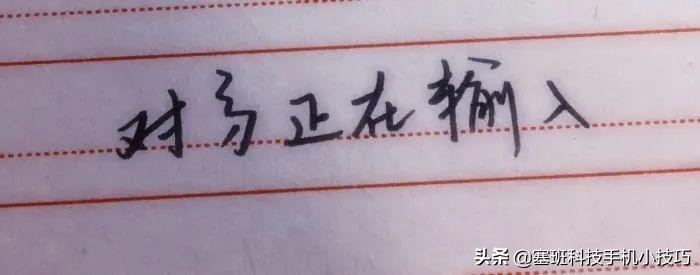 对方正在输入
头条 @塞班科技手机小技巧